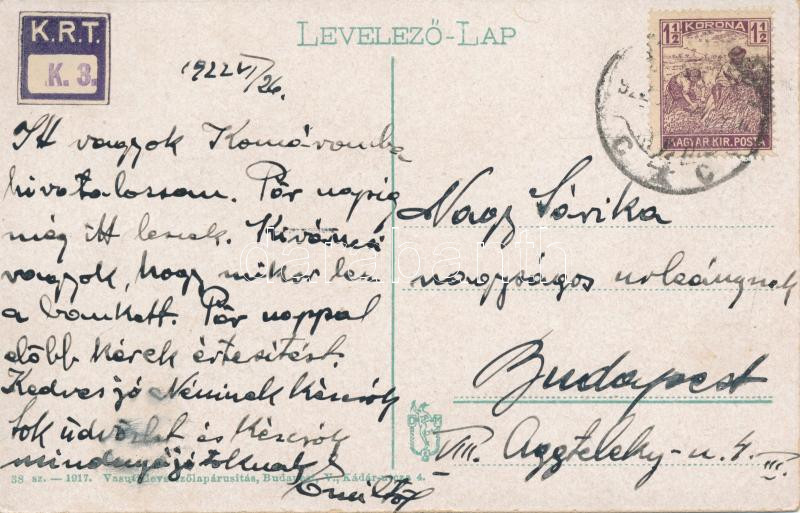 K.R.T.
K. 3.
LEVELEZŐ-LAP
1½ KORONA 1½
MAGYAR KIR. POSTA
1922 VI/26.
Itt vagyok Komáromba
hivatalossan. Pár napig
még itt leszek. Kiváncsi
vagyok, hogy mikor lesz
a bankett. Pár nappal
előbb kérek értesitést.
Kedves jó Néninek kézcsók
tok üdvözlet és kézcsók
mindnyájótoknak
Emiltől
Nagy Sárika
nagyságos urleánynak
Budapest
VIII. Aggteleky-u. 4. III.
38 sz. — 1917. Vasuti levelezőlapárusitás, Budapest, V., Kádár-utcza 4.